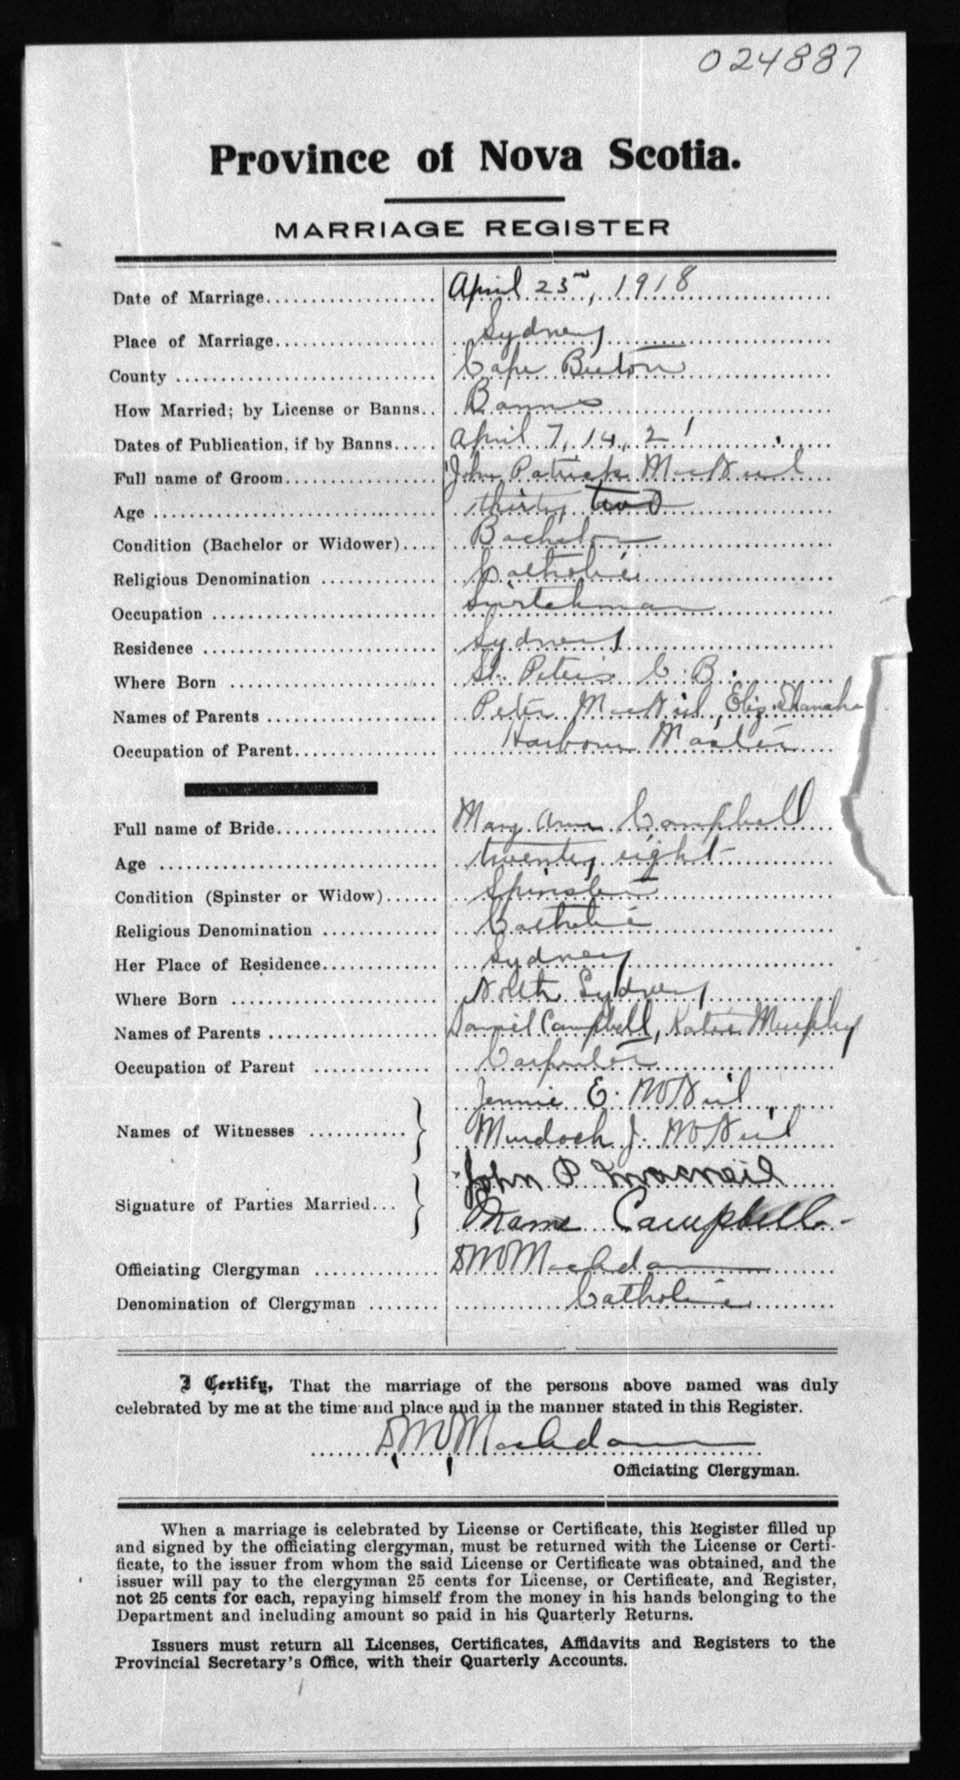 024887
Province of Nova Scotia.
MARRIAGE REGISTER
Date of Marriage.................. April 23rd, 1918
Place of Marriage................. Sydney
County ........................... Cape Breton
How Married; by License or Banns.. Banns
Dates of Publication, if by Banns..... April 7, 14, 21
Full name of Groom................ John Patrick MacNeil
Age .............................. thirty two
Condition (Bachelor or Widower).... Bachelor
Religious Denomination ........... Catholic
Occupation ....................... Switchman
Residence ........................ Sydney
Where Born ....................... St. Peter's C. B.
Names of Parents ................. Peter MacNeil, Eliz. Shanaha
Occupation of Parent.............. Harbour Master
Full name of Bride................ Mary Ann Campbell
Age .............................. twenty eight
Condition (Spinster or Widow)...... Spinster
Religious Denomination ........... Catholic
Her Place of Residence............ Sydney
Where Born ....................... North Sydney
Names of Parents ................. Daniel Campbell, Katie Murphy
Occupation of Parent ............. Carpenter
Names of Witnesses ........... } Jennie E. McNeil
Murdoch J. McNeil
Signature of Parties Married... } John P Macneil
Mame Campbell
Officiating Clergyman ............ D M MacAdam
Denomination of Clergyman ........ Catholic
I Certify, That the marriage of the persons above named was duly
celebrated by me at the time and place and in the manner stated in this Register.
D M MacAdam
Officiating Clergyman.
When a marriage is celebrated by License or Certificate, this Register filled up
and signed by the officiating clergyman, must be returned with the License or Certi-
ficate, to the issuer from whom the said License or Certificate was obtained, and the
issuer will pay to the clergyman 25 cents for License, or Certificate, and Register,
not 25 cents for each, repaying himself from the money in his hands belonging to the
Department and including amount so paid in his Quarterly Returns.
Issuers must return all Licenses, Certificates, Affidavits and Registers to the
Provincial Secretary's Office, with their Quarterly Accounts.